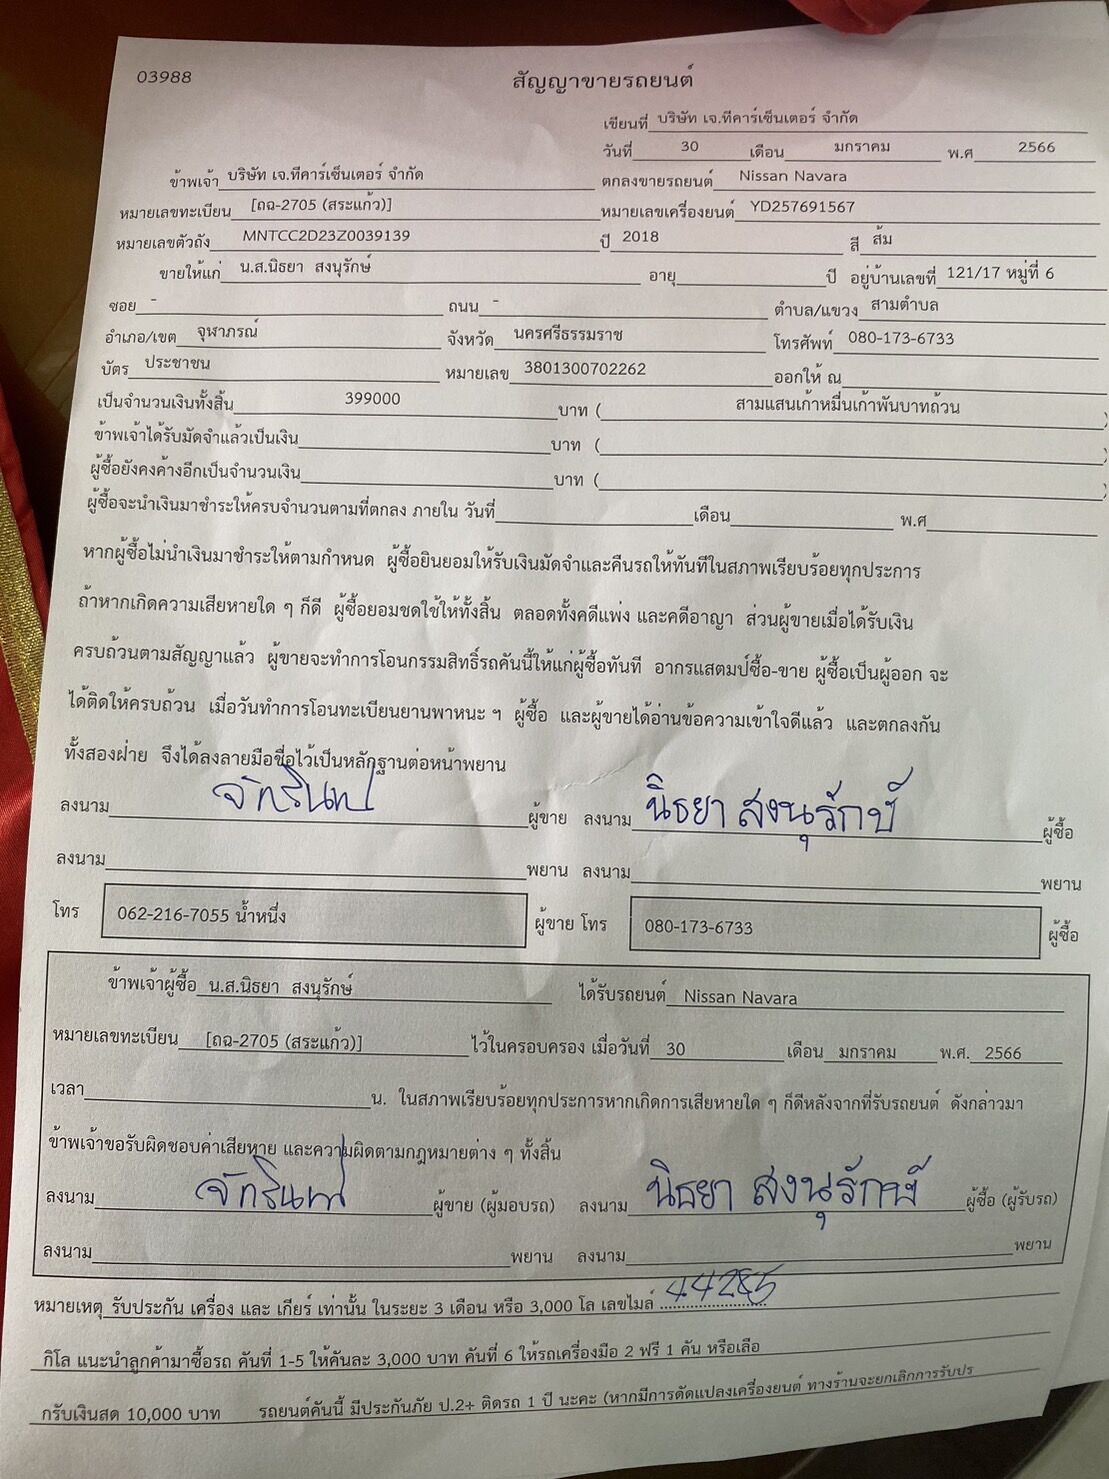 03988
สัญญาขายรถยนต์
เขียนที่ บริษัท เจ.ทีคาร์เซ็นเตอร์ จำกัด
วันที่ 30 เดือน มกราคม พ.ศ 2566
ข้าพเจ้า บริษัท เจ.ทีคาร์เซ็นเตอร์ จำกัด ตกลงขายรถยนต์ Nissan Navara
หมายเลขทะเบียน [ถฉ-2705 (สระแก้ว)] หมายเลขเครื่องยนต์ YD257691567
หมายเลขตัวถัง MNTCC2D23Z0039139 ปี 2018 สี ส้ม
ขายให้แก่ น.ส.นิธยา สงนุรักษ์ อายุ ปี อยู่บ้านเลขที่ 121/17 หมู่ที่ 6
ซอย - ถนน - ตำบล/แขวง สามตำบล
อำเภอ/เขต จุฬาภรณ์ จังหวัด นครศรีธรรมราช โทรศัพท์ 080-173-6733
บัตร ประชาชน หมายเลข 3801300702262 ออกให้ ณ
เป็นจำนวนเงินทั้งสิ้น 399000 บาท ( สามแสนเก้าหมื่นเก้าพันบาทถ้วน )
ข้าพเจ้าได้รับมัดจำแล้วเป็นเงิน บาท ( )
ผู้ซื้อยังคงค้างอีกเป็นจำนวนเงิน บาท ( )
ผู้ซื้อจะนำเงินมาชำระให้ครบจำนวนตามที่ตกลง ภายใน วันที่ เดือน พ.ศ
หากผู้ซื้อไม่นำเงินมาชำระให้ตามกำหนด ผู้ซื้อยินยอมให้รับเงินมัดจำและคืนรถให้ทันทีในสภาพเรียบร้อยทุกประการ
ถ้าหากเกิดความเสียหายใด ๆ ก็ดี ผู้ซื้อยอมชดใช้ให้ทั้งสิ้น ตลอดทั้งคดีแพ่ง และคดีอาญา ส่วนผู้ขายเมื่อได้รับเงิน
ครบถ้วนตามสัญญาแล้ว ผู้ขายจะทำการโอนกรรมสิทธิ์รถคันนี้ให้แก่ผู้ซื้อทันที อากรแสตมป์ซื้อ-ขาย ผู้ซื้อเป็นผู้ออก จะ
ได้ติดให้ครบถ้วน เมื่อวันทำการโอนทะเบียนยานพาหนะ ฯ ผู้ซื้อ และผู้ขายได้อ่านข้อความเข้าใจดีแล้ว และตกลงกัน
ทั้งสองฝ่าย จึงได้ลงลายมือชื่อไว้เป็นหลักฐานต่อหน้าพยาน
ลงนาม ผู้ขาย ลงนาม นิธยา สงนุรักษ์ ผู้ซื้อ
ลงนาม พยาน ลงนาม พยาน
โทร 062-216-7055 น้ำหนึ่ง ผู้ขาย โทร 080-173-6733 ผู้ซื้อ
ข้าพเจ้าผู้ซื้อ น.ส.นิธยา สงนุรักษ์ ได้รับรถยนต์ Nissan Navara
หมายเลขทะเบียน [ถฉ-2705 (สระแก้ว)] ไว้ในครอบครอง เมื่อวันที่ 30 เดือน มกราคม พ.ศ. 2566
เวลา น. ในสภาพเรียบร้อยทุกประการหากเกิดการเสียหายใด ๆ ก็ดีหลังจากที่รับรถยนต์ ดังกล่าวมา
ข้าพเจ้าขอรับผิดชอบค่าเสียหาย และความผิดตามกฎหมายต่าง ๆ ทั้งสิ้น
ลงนาม ผู้ขาย (ผู้มอบรถ) ลงนาม นิธยา สงนุรักษ์ ผู้ซื้อ (ผู้รับรถ)
ลงนาม พยาน ลงนาม พยาน
หมายเหตุ รับประกัน เครื่อง และ เกียร์ เท่านั้น ในระยะ 3 เดือน หรือ 3,000 โล เลขไมล์ 44285
กิโล แนะนำลูกค้ามาซื้อรถ คันที่ 1-5 ให้คันละ 3,000 บาท คันที่ 6 ให้รถเครื่องมือ 2 ฟรี 1 คัน หรือเลือ
กรับเงินสด 10,000 บาท รถยนต์คันนี้ มีประกันภัย ป.2+ ติดรถ 1 ปี นะคะ (หากมีการดัดแปลงเครื่องยนต์ ทางร้านจะยกเลิกการรับปร